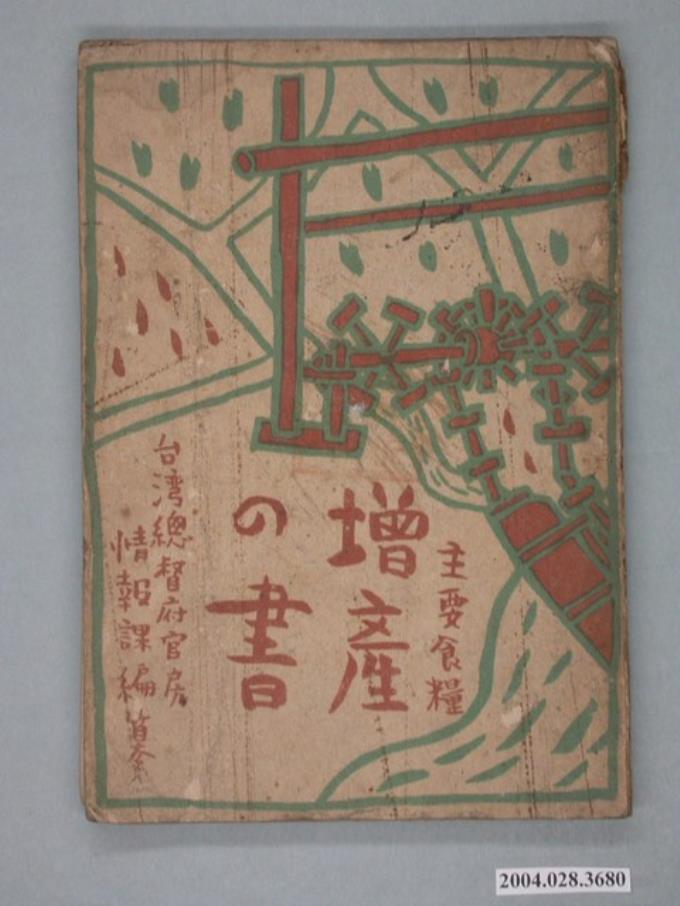 主要食糧
増産
の書
台湾總督府官房
情報課編纂
2004.028.3680